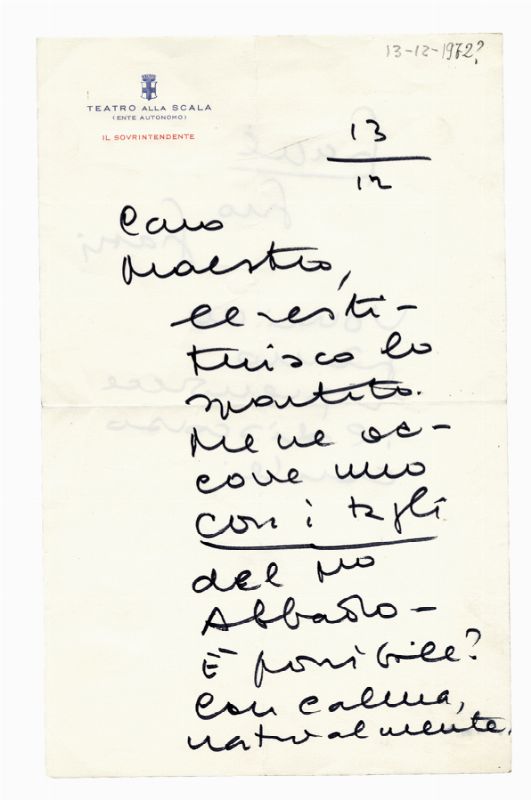 13-12-1972?
TEATRO ALLA SCALA
(ENTE AUTONOMO)
IL SOVRINTENDENTE
13
12
Caro
Maestro,
le resti-
tuisco lo
spartito.
Me ne oc-
corre uno
con i tagli
del Mo
Abbado -
È possibile?
Con calma,
naturalmente.